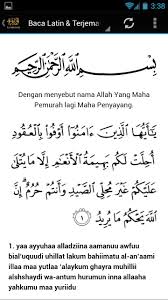 3:38
Baca Latin & Terjema
بِسْمِ اللَّهِ الرَّحْمَٰنِ الرَّحِيمِ
Dengan menyebut nama Allah Yang Maha
Pemurah lagi Maha Penyayang.
يَٰٓأَيُّهَا ٱلَّذِينَ ءَامَنُوٓا۟ أَوْفُوا۟ بِٱلْعُقُودِ
أُحِلَّتْ لَكُم بَهِيمَةُ ٱلْأَنْعَٰمِ إِلَّا مَا يُتْلَىٰ
عَلَيْكُمْ غَيْرَ مُحِلِّى ٱلصَّيْدِ وَأَنتُمْ حُرُمٌ إِنَّ
ٱللَّهَ يَحْكُمُ مَا يُرِيدُ ١
1. yaa ayyuhaa alladziina aamanuu awfuu
bial'uquudi uhillat lakum bahiimatu al-an'aami
illaa maa yutlaa 'alaykum ghayra muhillii
alshshaydi wa-antum hurumun inna allaaha
yahkumu maa yuriidu